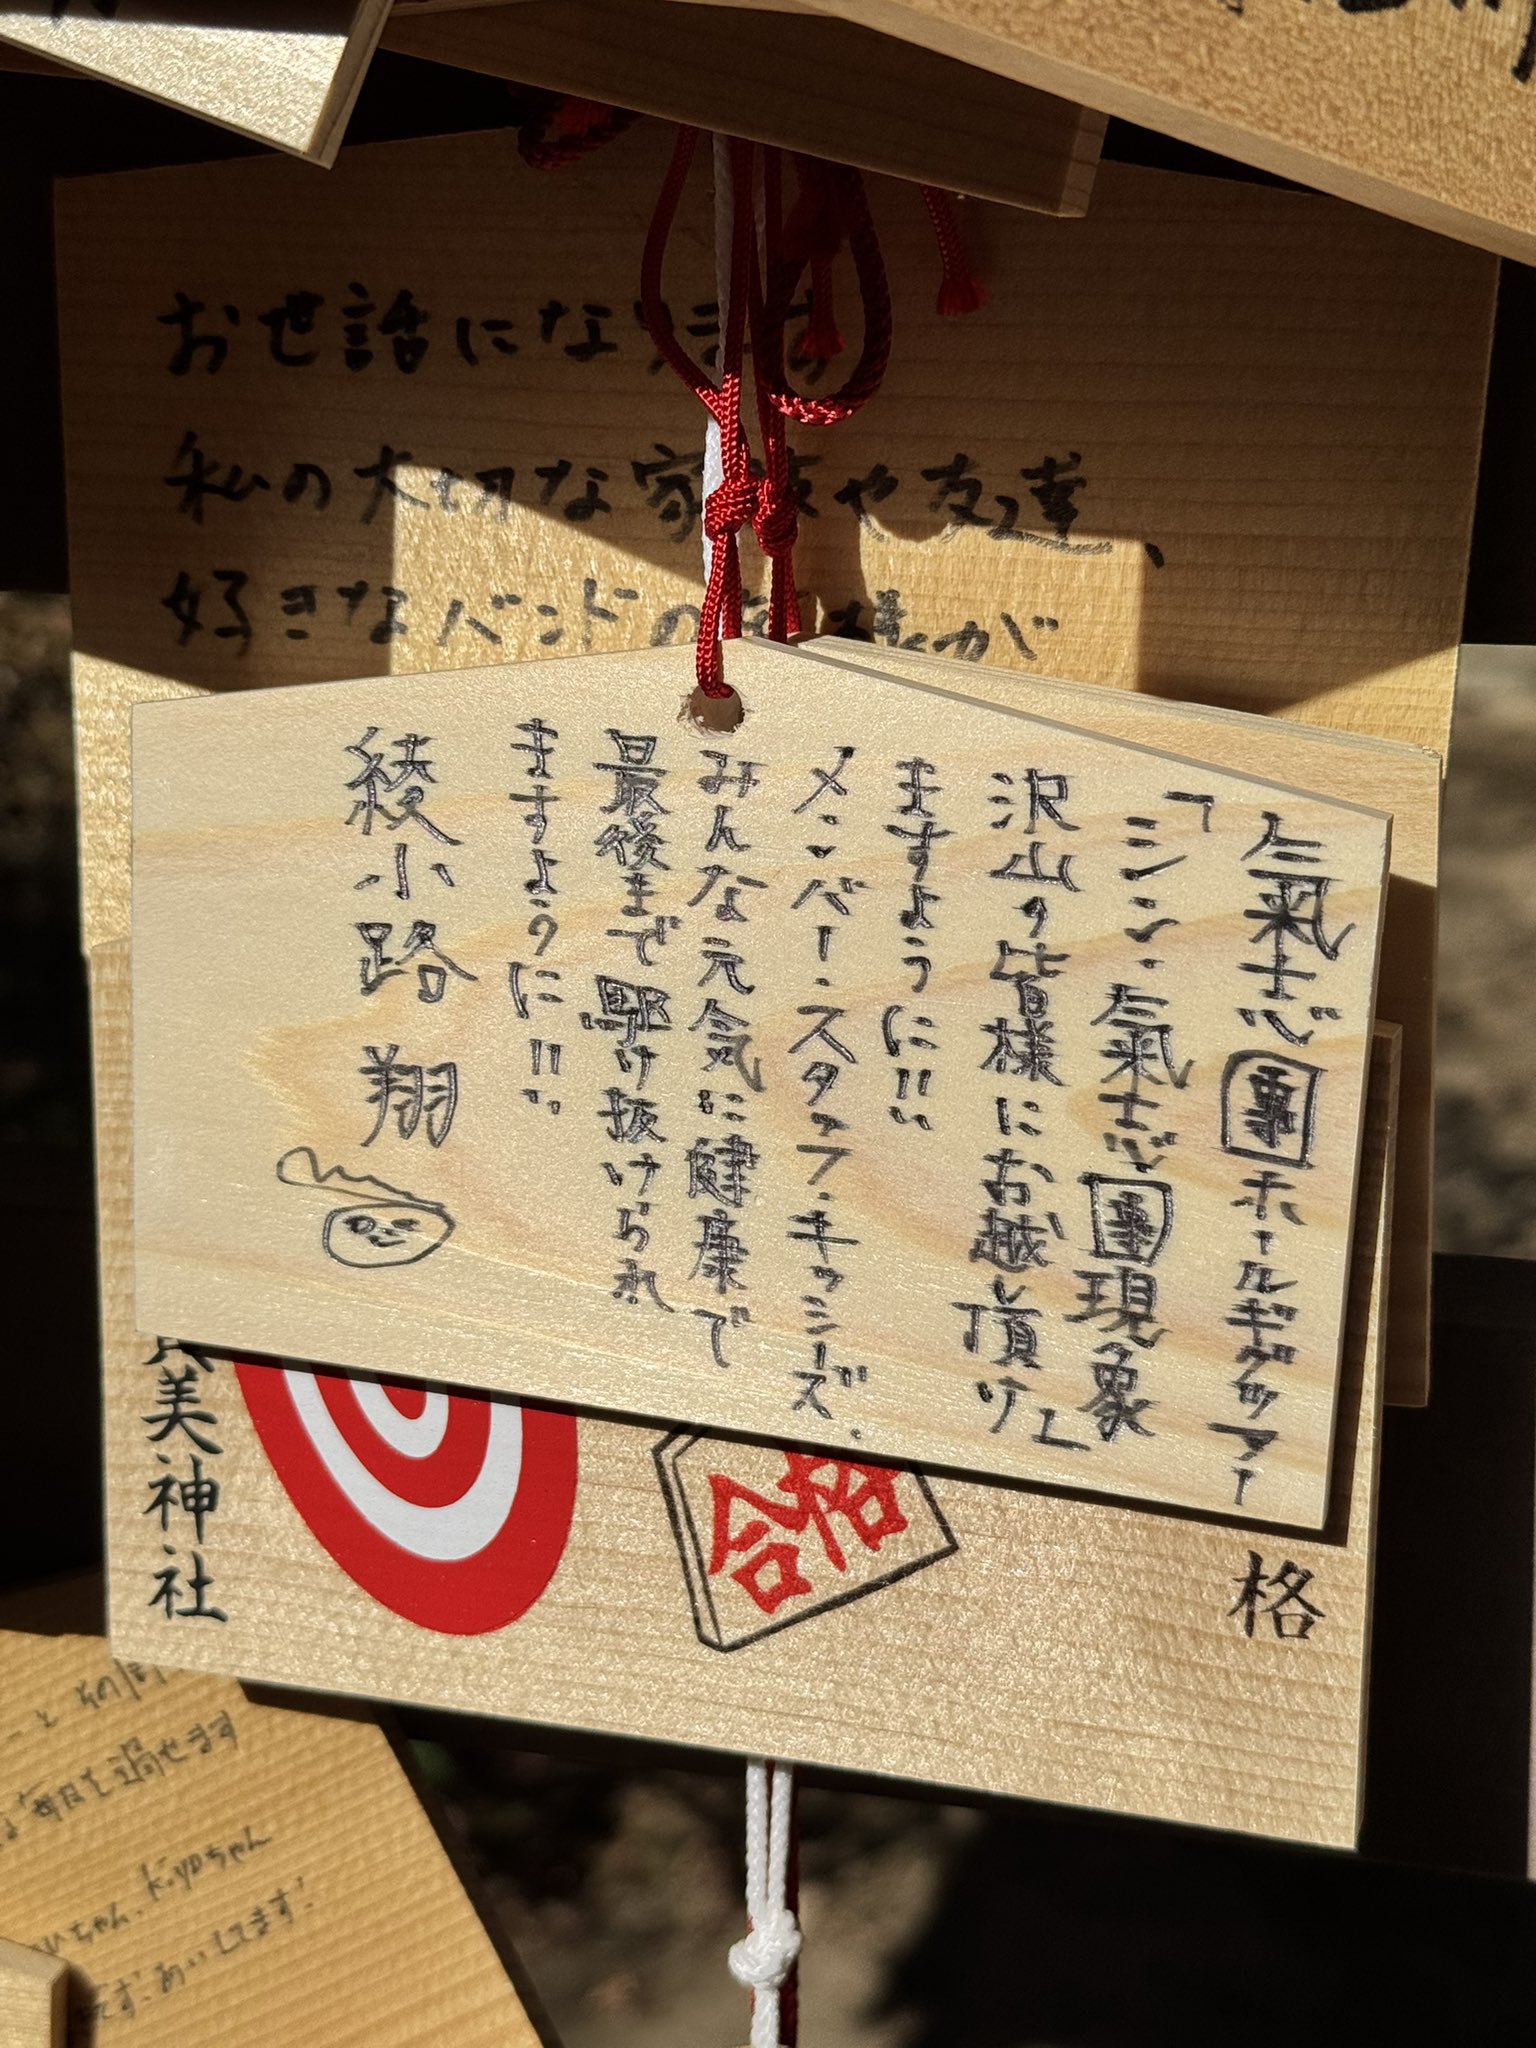 お世話になります
私の大切な家族や友達、
好きなバンドの皆様が
氣志團ホールギグツアー
「シン・氣志團現象」
沢山の皆様にお越し頂け
ますように!!
メンバー・スタッフ・キッシーズ、
みんな元気に健康で
最後まで駆け抜けられ
ますように!!
綾小路 翔
合格
格
美神社
とその
毎日を過せます
ちゃん、Kiyoちゃん
ます! あいしてます!